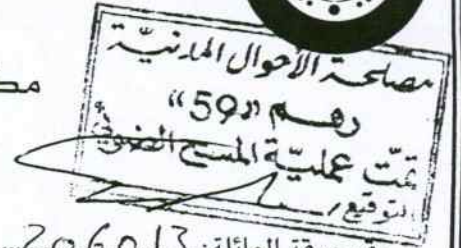 مصلحة الأحوال المدنيّة
رقم «59»
تمّت عمليّة المسح الضوئي
التوقيع
ورقة العائلة: 206013